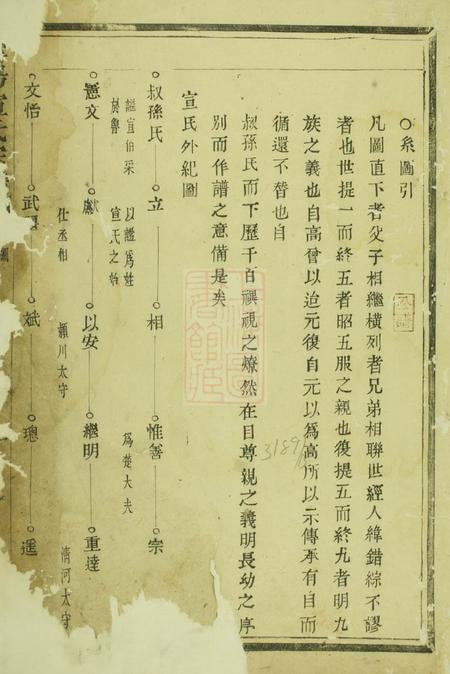 ○系圖引
凡圖直下者父子相繼橫列者兄弟相聯世經人緯錯綜不謬
者也世提一而終五者昭五服之親也復提五而終九者明九
族之義也自高曾以迨元復自元以為高所以示傳承有自而
循還不替也自
叔孫氏而下歷千百禩視之燎然在目尊親之義明長幼之序
別而作譜之意備是矣
宣氏外紀圖
叔孫氏 立 相 惟善 宗
諡宣伯采 以諡爲姓 爲楚大夫
於魯 宣氏之始
憲文 獻 以安 繼明 重達
仕丞相 潁川太守 淸河太守
文怡 武 斌 璁 遥
31891